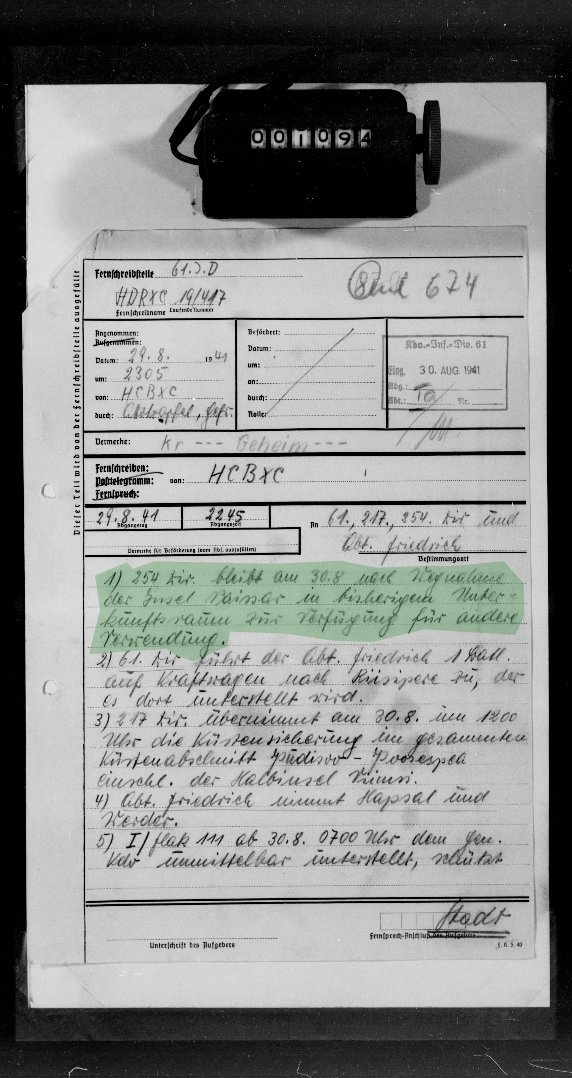 001094
Fernschreibstelle 61.J.D
HDRXC 19/417
Fernschreibname Laufende Nummer
674
Angenommen:
Aufgenommen:
Datum: 29.8. 1941
um: 2305
von: HCBXC
durch: Gefr.
Befördert:
Datum:
um:
an:
durch:
Rolle:
Kdo.-Inf.-Div. 61
Eing. 30. AUG. 1941
Abtg.
Abt.: Ia Nr.
Dieser Teil wird von der Fernschreibstelle ausgefüllt
Vermerke: Kr --- Geheim ---
Fernschreiben:
Posttelegramm: von: HCBXC
Fernspruch:
29.8.41 2245
Abgangstag Abgangszeit
An 61., 217., 254. Div und
Abt. Friedrich
Vermerke für Beförderung (vom Abs. auszufüllen)
Bestimmungsort
1) 254 Div. bleibt am 30.8 nach Wegnahme
der Insel Naissar in bisherigem Unter-
kunftsraum zur Verfügung für andere
Verwendung.
2) 61. Div führt der Abt. Friedrich 1 Batl.
auf Kraftwagen nach Riisipere zu, der
es dort unterstellt wird.
3) 217 Div. übernimmt am 30.8. um 1200
Uhr die Küstensicherung im gesammten
Küstenabschnitt Püdisoo - Poosespea
einschl. der Halbinsel Viimsi.
4) Abt. Friedrich nimmt Hapsal und
Werder.
5) I/Flak 111 ab 30.8. 0700 Uhr dem Gen.
Kdo unmittelbar unterstellt, schützt
Unterschrift des Aufgebers
Fernsprech-Anschluß des Aufgebers